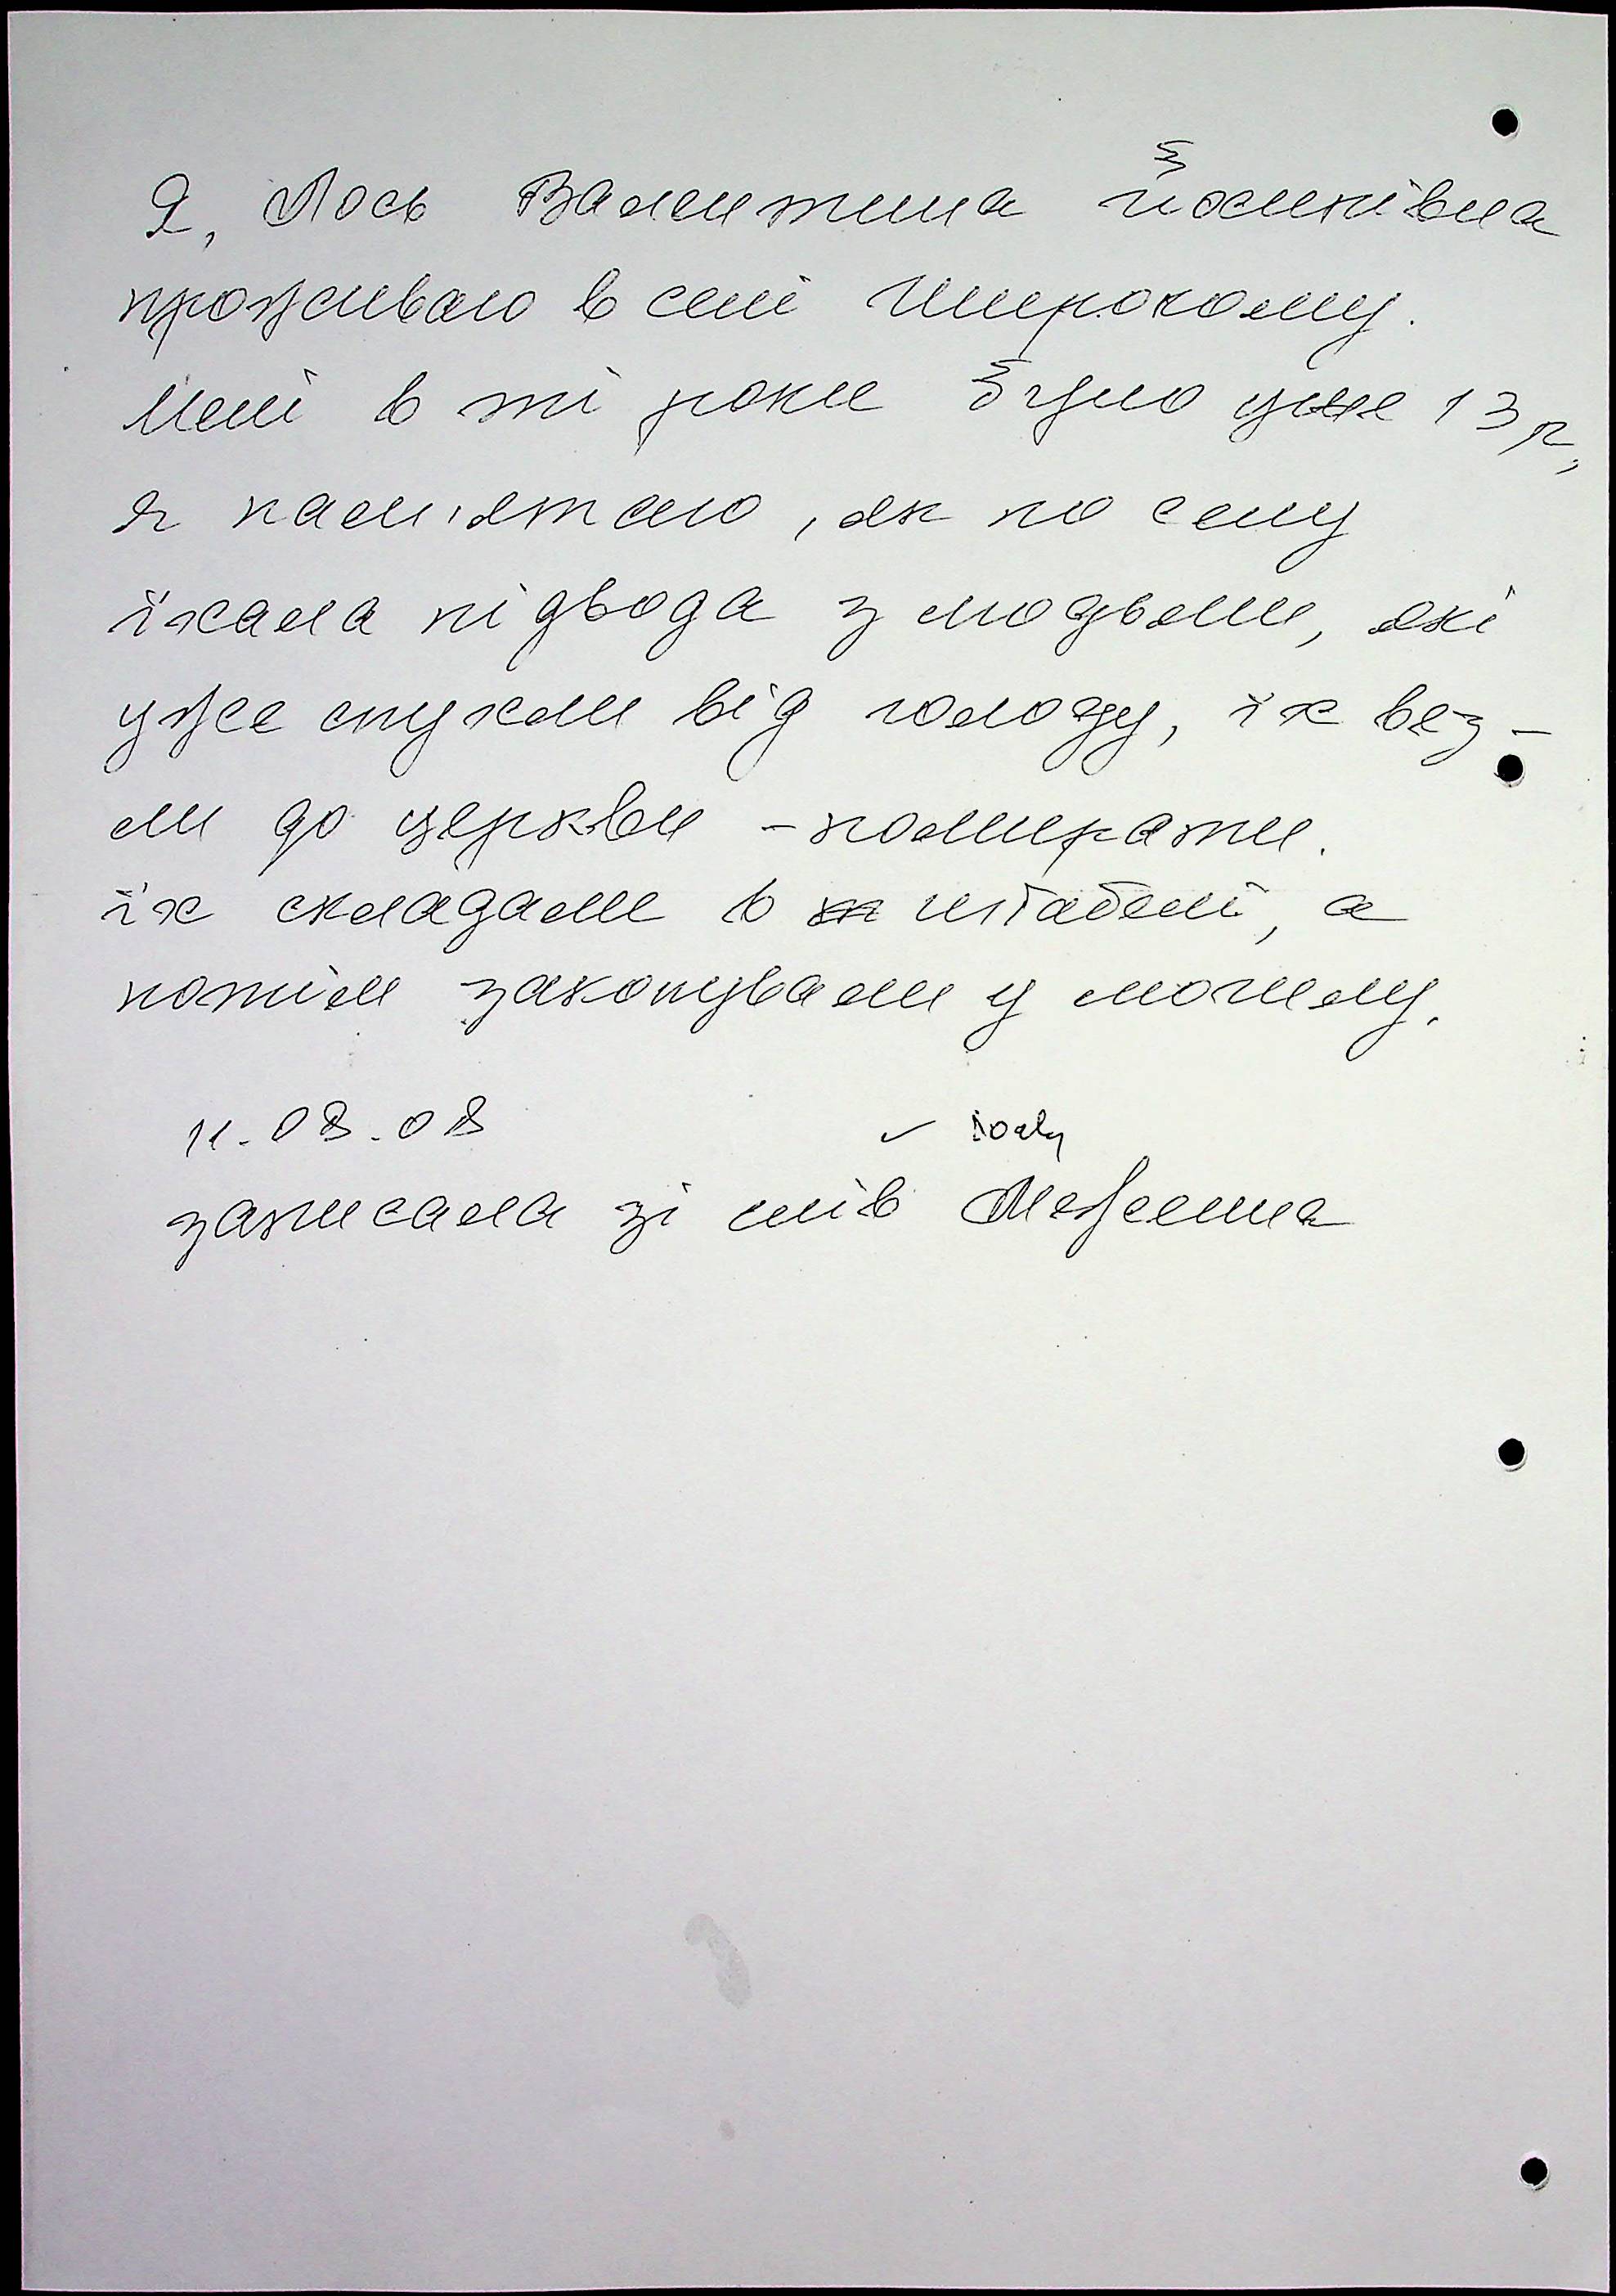 Я, Лось Валентина Йосипівна
проживаю в селі Широкому.
Мені в ті роки було уже 13 р,
я пам'ятаю, як по селу
їхала підвода з людьми, які
уже опухли від голоду, їх вез-
ли до церкви - помирати.
їх складали в штабелі, а
потім закопували у могилу.
11.08.08
записала зі слів